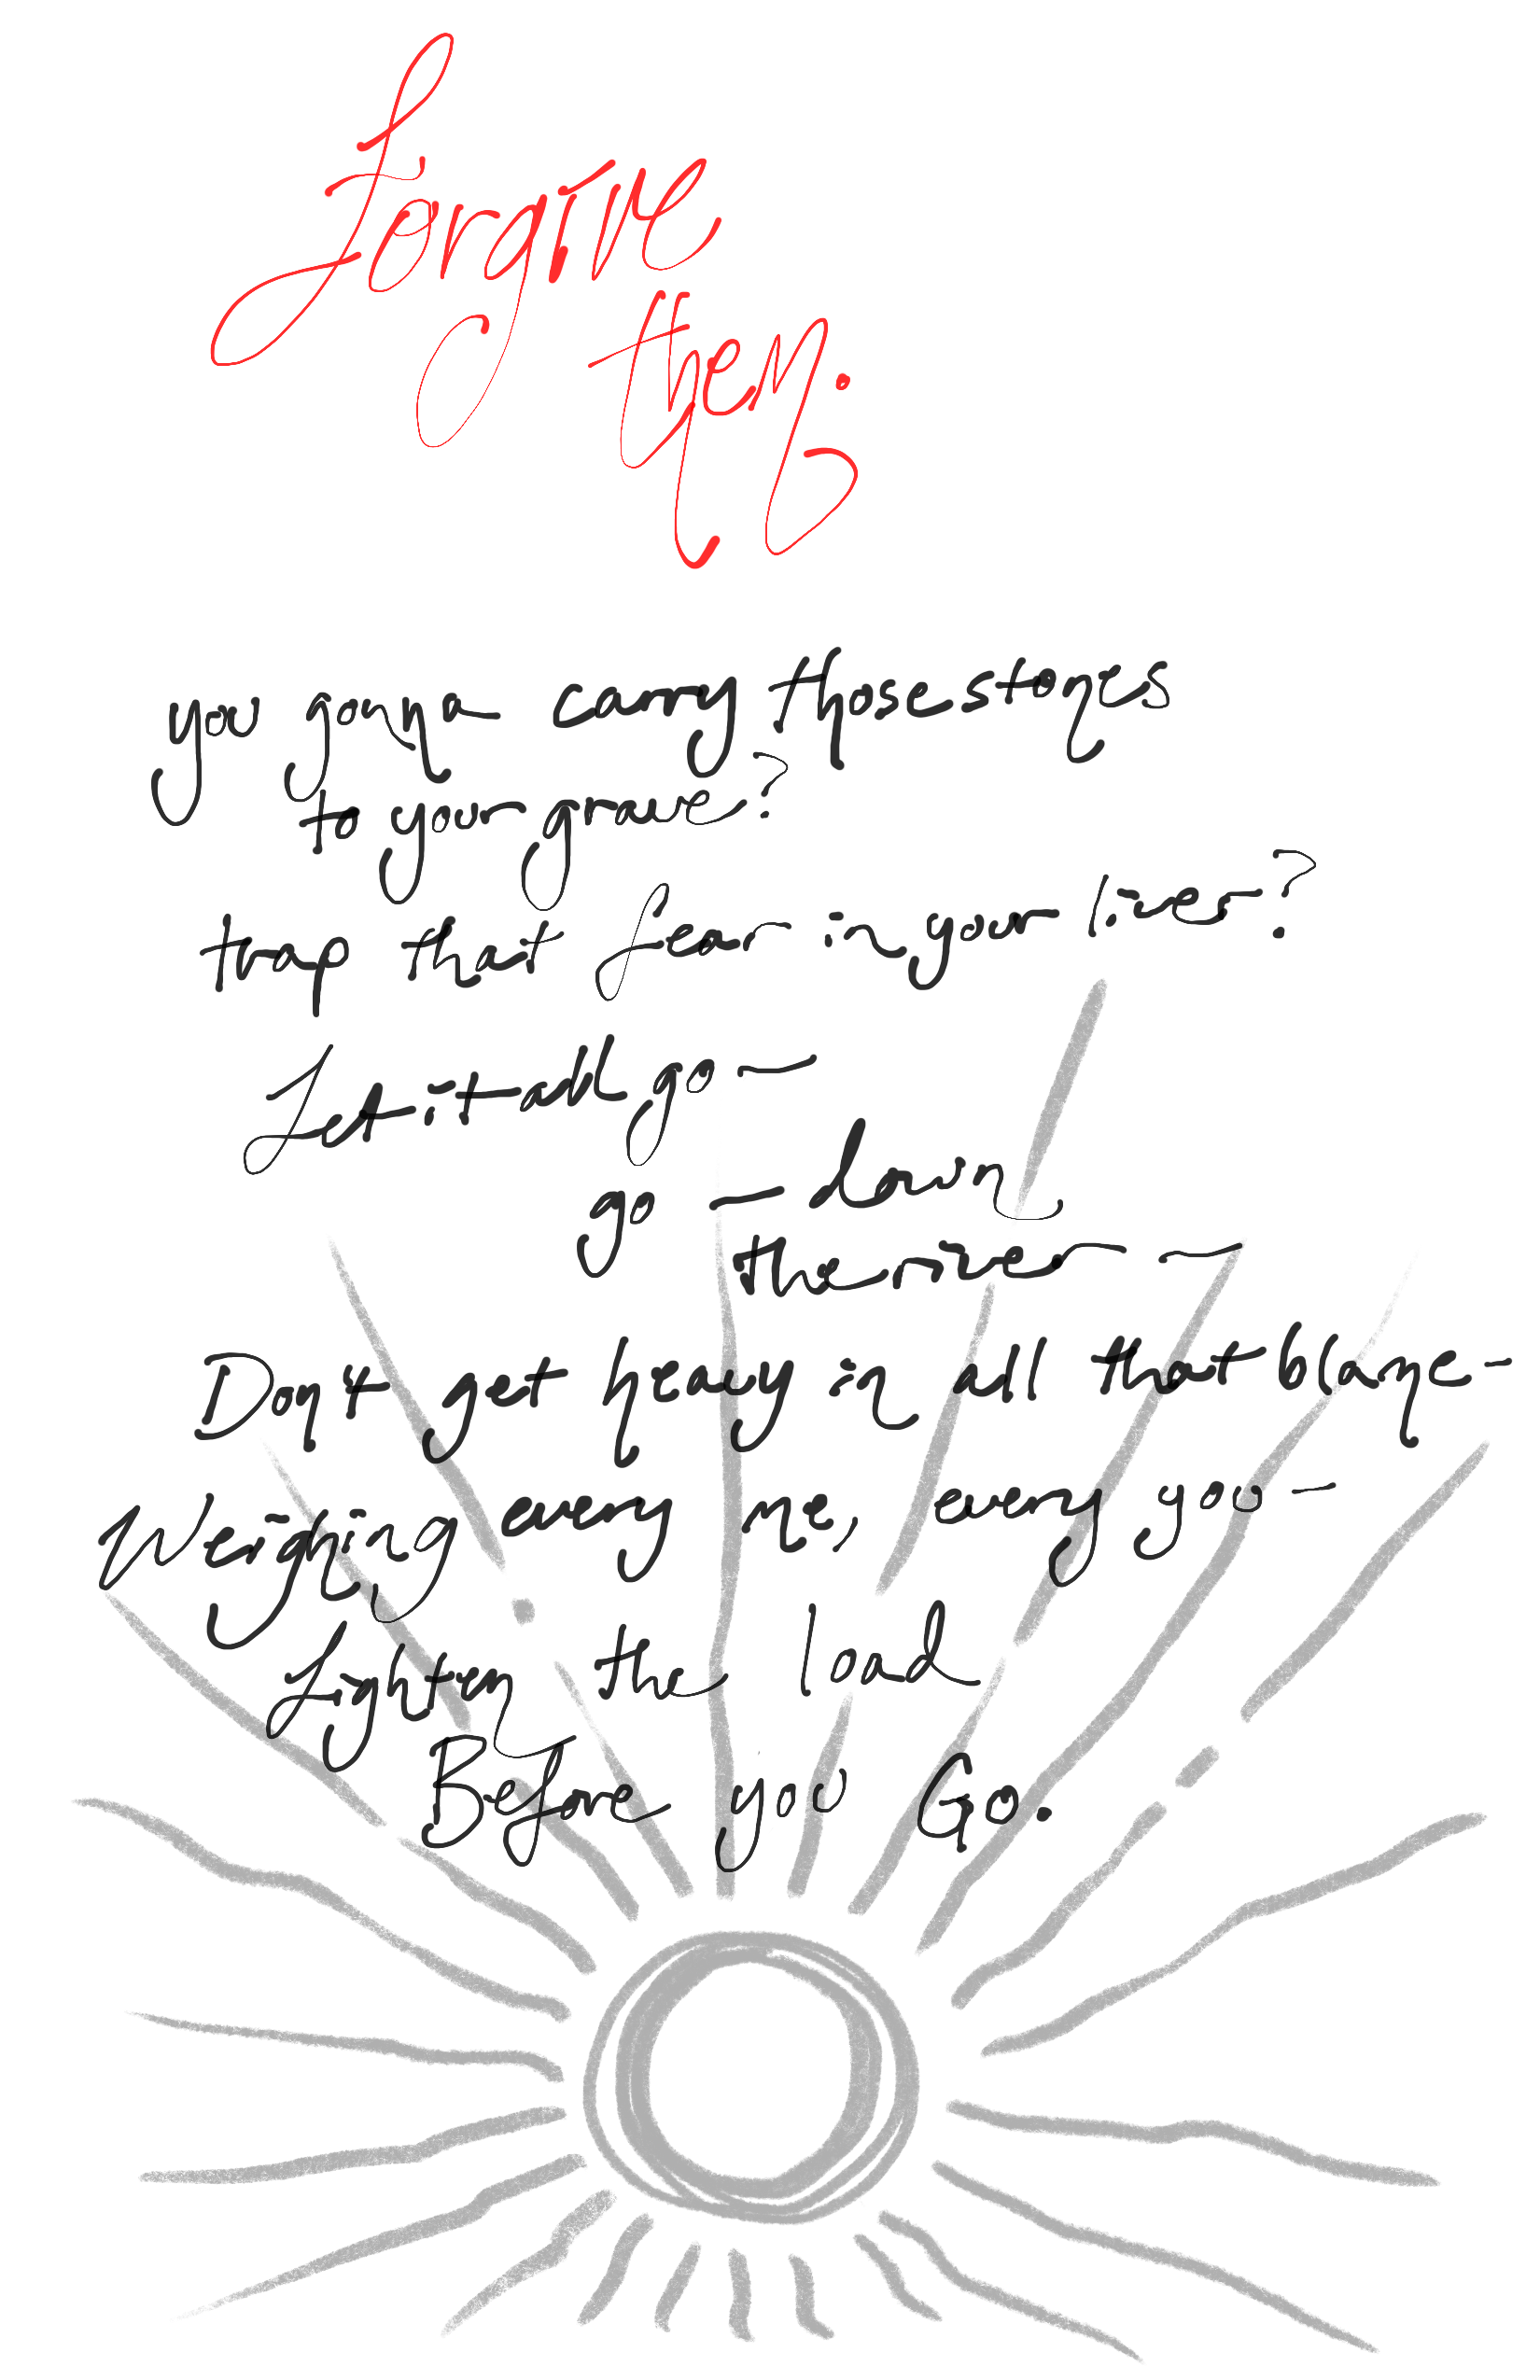 forgive
them.
you gonna carry those stones
to your grave?
trap that fear in your liver?
Let it all go —
go — down
the river —
Don't get heavy in all that blame -
Weighing every me, every you -
Lighten the load
Before you Go.